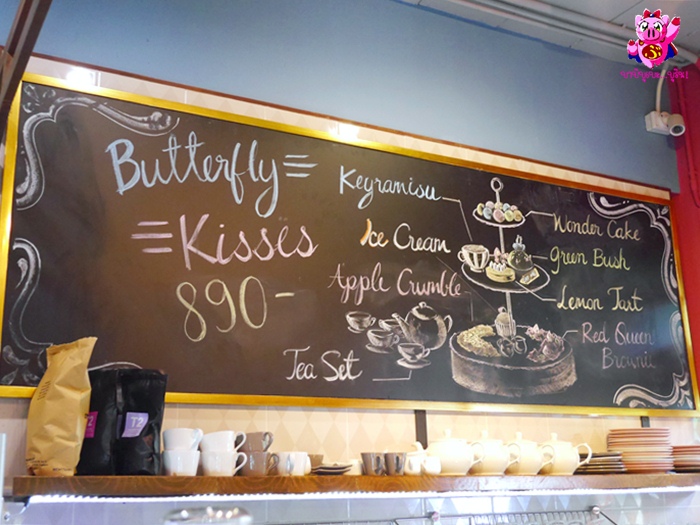 Butterfly
Kisses
890-
Keyramisu
Ice Cream
Apple Crumble
Tea Set
Wonder Cake
green Bush
Lemon Tart
Red Queen
Brownie
T2